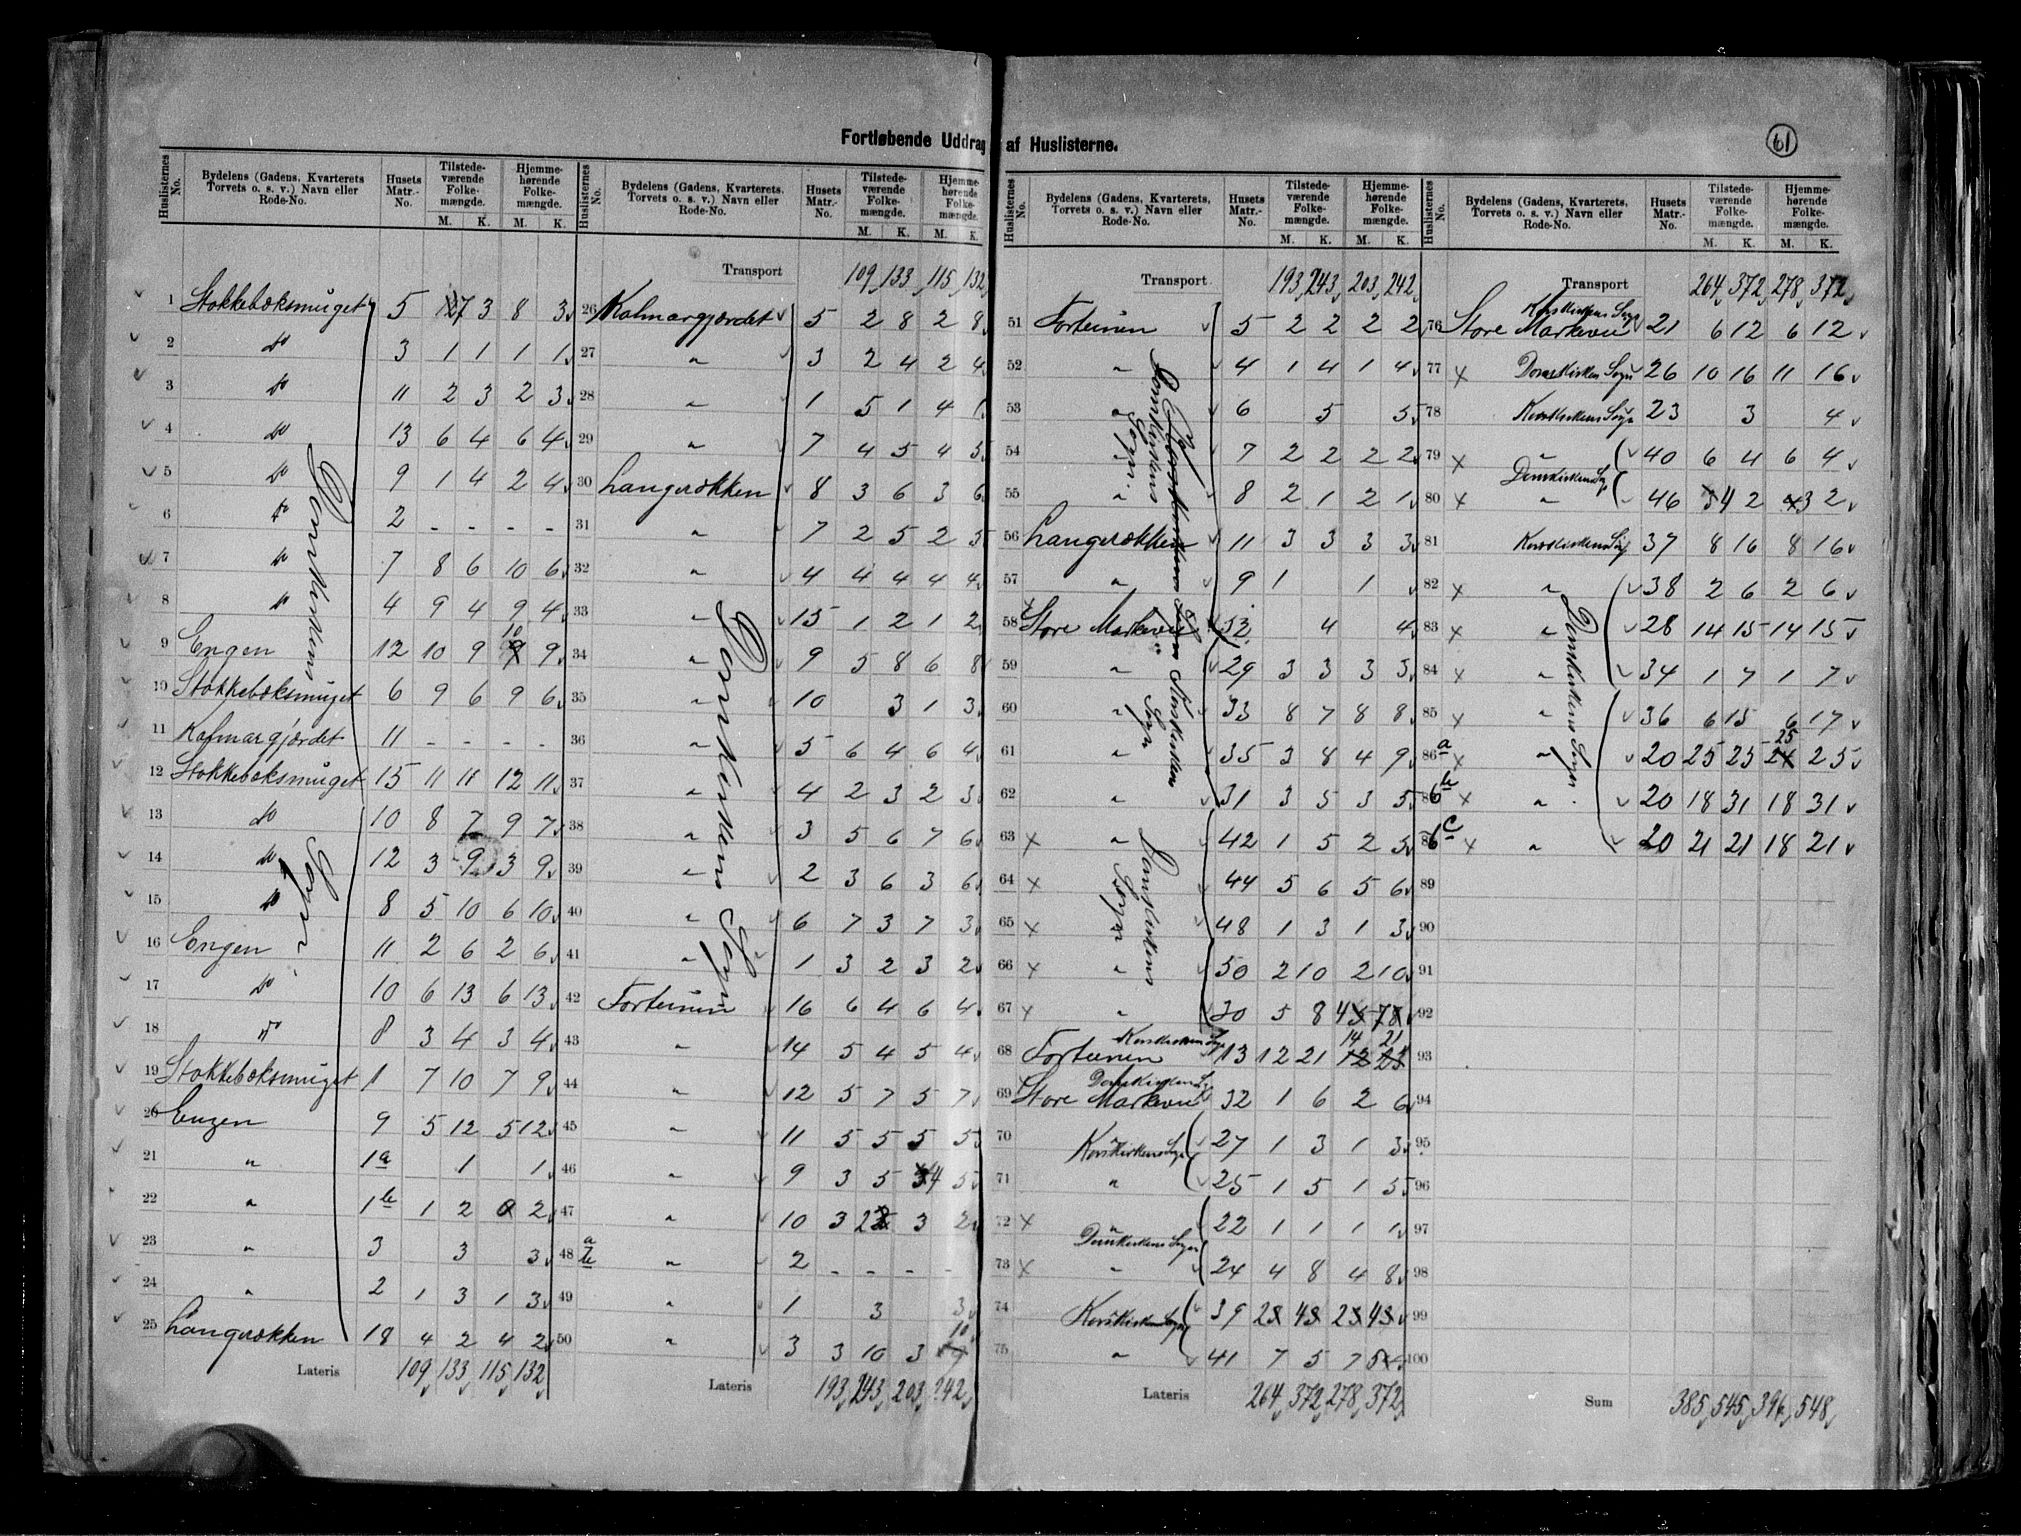 Fortløbende Uddrag af Huslisterne.
61
Huslisternes No. Bydelens (Gadens, Kvarterets Torvets o. s. v.) Navn eller Rode-No. Husets Matr.-No. Tilstedeværende Folkemængde. M. K. Hjemmehørende Folkemængde. M. K.
1 Stokkebæksmuget 5 7 3 8 3
2 do 3 1 1 1 1
3 do 11 2 3 2 3
4 do 13 6 4 6 4
5 do 9 1 4 2 4
6 do 2 - - - -
7 do 7 8 6 10 6
8 do 4 9 4 9 4
9 Engen 12 10 9 10 9
10 Stokkebæksmuget 6 9 6 9 6
11 Kalmargjærdet 11 - - - -
12 Stokkebæksmuget 15 11 11 12 11
13 do 10 8 7 9 7
14 do 12 3 9 3 9
15 do 8 5 10 6 10
16 Engen 11 2 6 2 6
17 do 10 6 13 6 13
18 do 8 3 4 3 4
19 Stokkebæksmuget 1 7 10 7 9
20 Engen 9 5 12 5 12
21 " 1a 1 1
22 " 1b 1 2 0 2
23 " 3 3 3
24 " 2 1 3 1 3
25 Langerækken 18 4 2 4 2
Domkirkens Sogn
Lateris 109 133 115 132
Huslisternes No. Bydelens (Gadens, Kvarterets, Torvets o. s. v.) Navn eller Rode-No. Husets Matr.-No. Tilstedeværende Folkemængde. M. K. Hjemmehørende Folkemængde. M. K.
Transport 109 133 115 132
26 Kalmargjærdet 5 2 8 2 8
27 " 3 2 4 2 4
28 " 1 5 1 4 1
29 " 7 4 5 4 5
30 Langerækken 8 3 6 3 6
31 " 7 2 5 2 5
32 " 4 4 4 4 4
33 " 15 1 2 1 2
34 " 9 5 8 6 8
35 " 10 3 1 3
36 " 5 6 4 6 4
37 " 4 2 3 2 3
38 " 3 5 6 7 6
39 " 2 3 6 3 6
40 " 6 7 3 7 3
41 " 1 3 2 3 2
42 Fortunen 16 6 4 6 4
43 " 14 5 4 5 4
44 " 12 5 7 5 7
45 " 11 5 5 5 5
46 " 9 3 5 4 5
47 " 10 3 2 3 2
48 a b " 2 - - - -
49 " 1 3 3
50 " 3 3 10 3 10
Domkirkens Sogn
Lateris 193 243 203 242
Huslisternes No. Bydelens (Gadens, Kvarterets, Torvets o. s. v.) Navn eller Rode-No. Husets Matr.-No. Tilstedeværende Folkemængde. M. K. Hjemmehørende Folkemængde. M. K.
Transport 193 243 203 242
51 Fortunen 5 2 2 2 2
52 " 4 1 4 1 4
53 " 6 5 5
54 " 7 2 2 2 2
55 " 8 2 1 2 1
56 Langerækken 11 3 3 3 3
57 " 9 1 1
58 Store Markevei 52 4 4
59 " 29 3 3 3 3
60 " 33 8 7 8 8
61 " 35 3 8 4 9
62 " 31 3 5 3 5
63 " 42 1 5 2 5
64 " 44 5 6 5 6
65 " 48 1 3 1 3
66 " 50 2 10 2 10
67 " 30 5 8 4 7
68 Fortunen Korskirkens Sogn 13 12 21 14 21
69 Store Markevei Domkirkens Sogn 32 1 6 2 6
70 Korskirkens Sogn 27 1 3 1 3
71 " 25 1 5 1 5
72 " 22 1 1 1 1
Domkirkens Sogn
73 " 24 4 8 4 8
74 Korskirkens Sogn 39 2 4 2 4
75 " 41 7 5 7 5
Domkirkens Sogn
Domkirkens Sogn
Lateris 264 372 278 372
Huslisternes No. Bydelens (Gadens, Kvarterets, Torvets o. s. v.) Navn eller Rode-No. Husets Matr.-No. Tilstedeværende Folkemængde. M. K. Hjemmehørende Folkemængde. M. K.
Transport 264 372 278 372
76 Store Markevei Korskirkens Sogn 21 6 12 6 12
77 Domkirkens Sogn 26 10 16 11 16
78 Korskirkens Sogn 23 3 4
79 " 40 6 4 6 4
Domkirkens Sogn
80 " 46 4 2 3 2
81 Korskirkens Sogn 37 8 16 8 16
82 " 38 2 6 2 6
83 " 28 14 15 14 15
84 " 34 1 7 1 7
85 " 36 6 15 6 17
86a " 20 25 25 25 25
86b " 20 18 31 18 31
86c " 20 21 21 18 21
Domkirkens Sogn
89
90
91
92
93
94
95
96
97
98
99
100
Sum 385 545 396 548